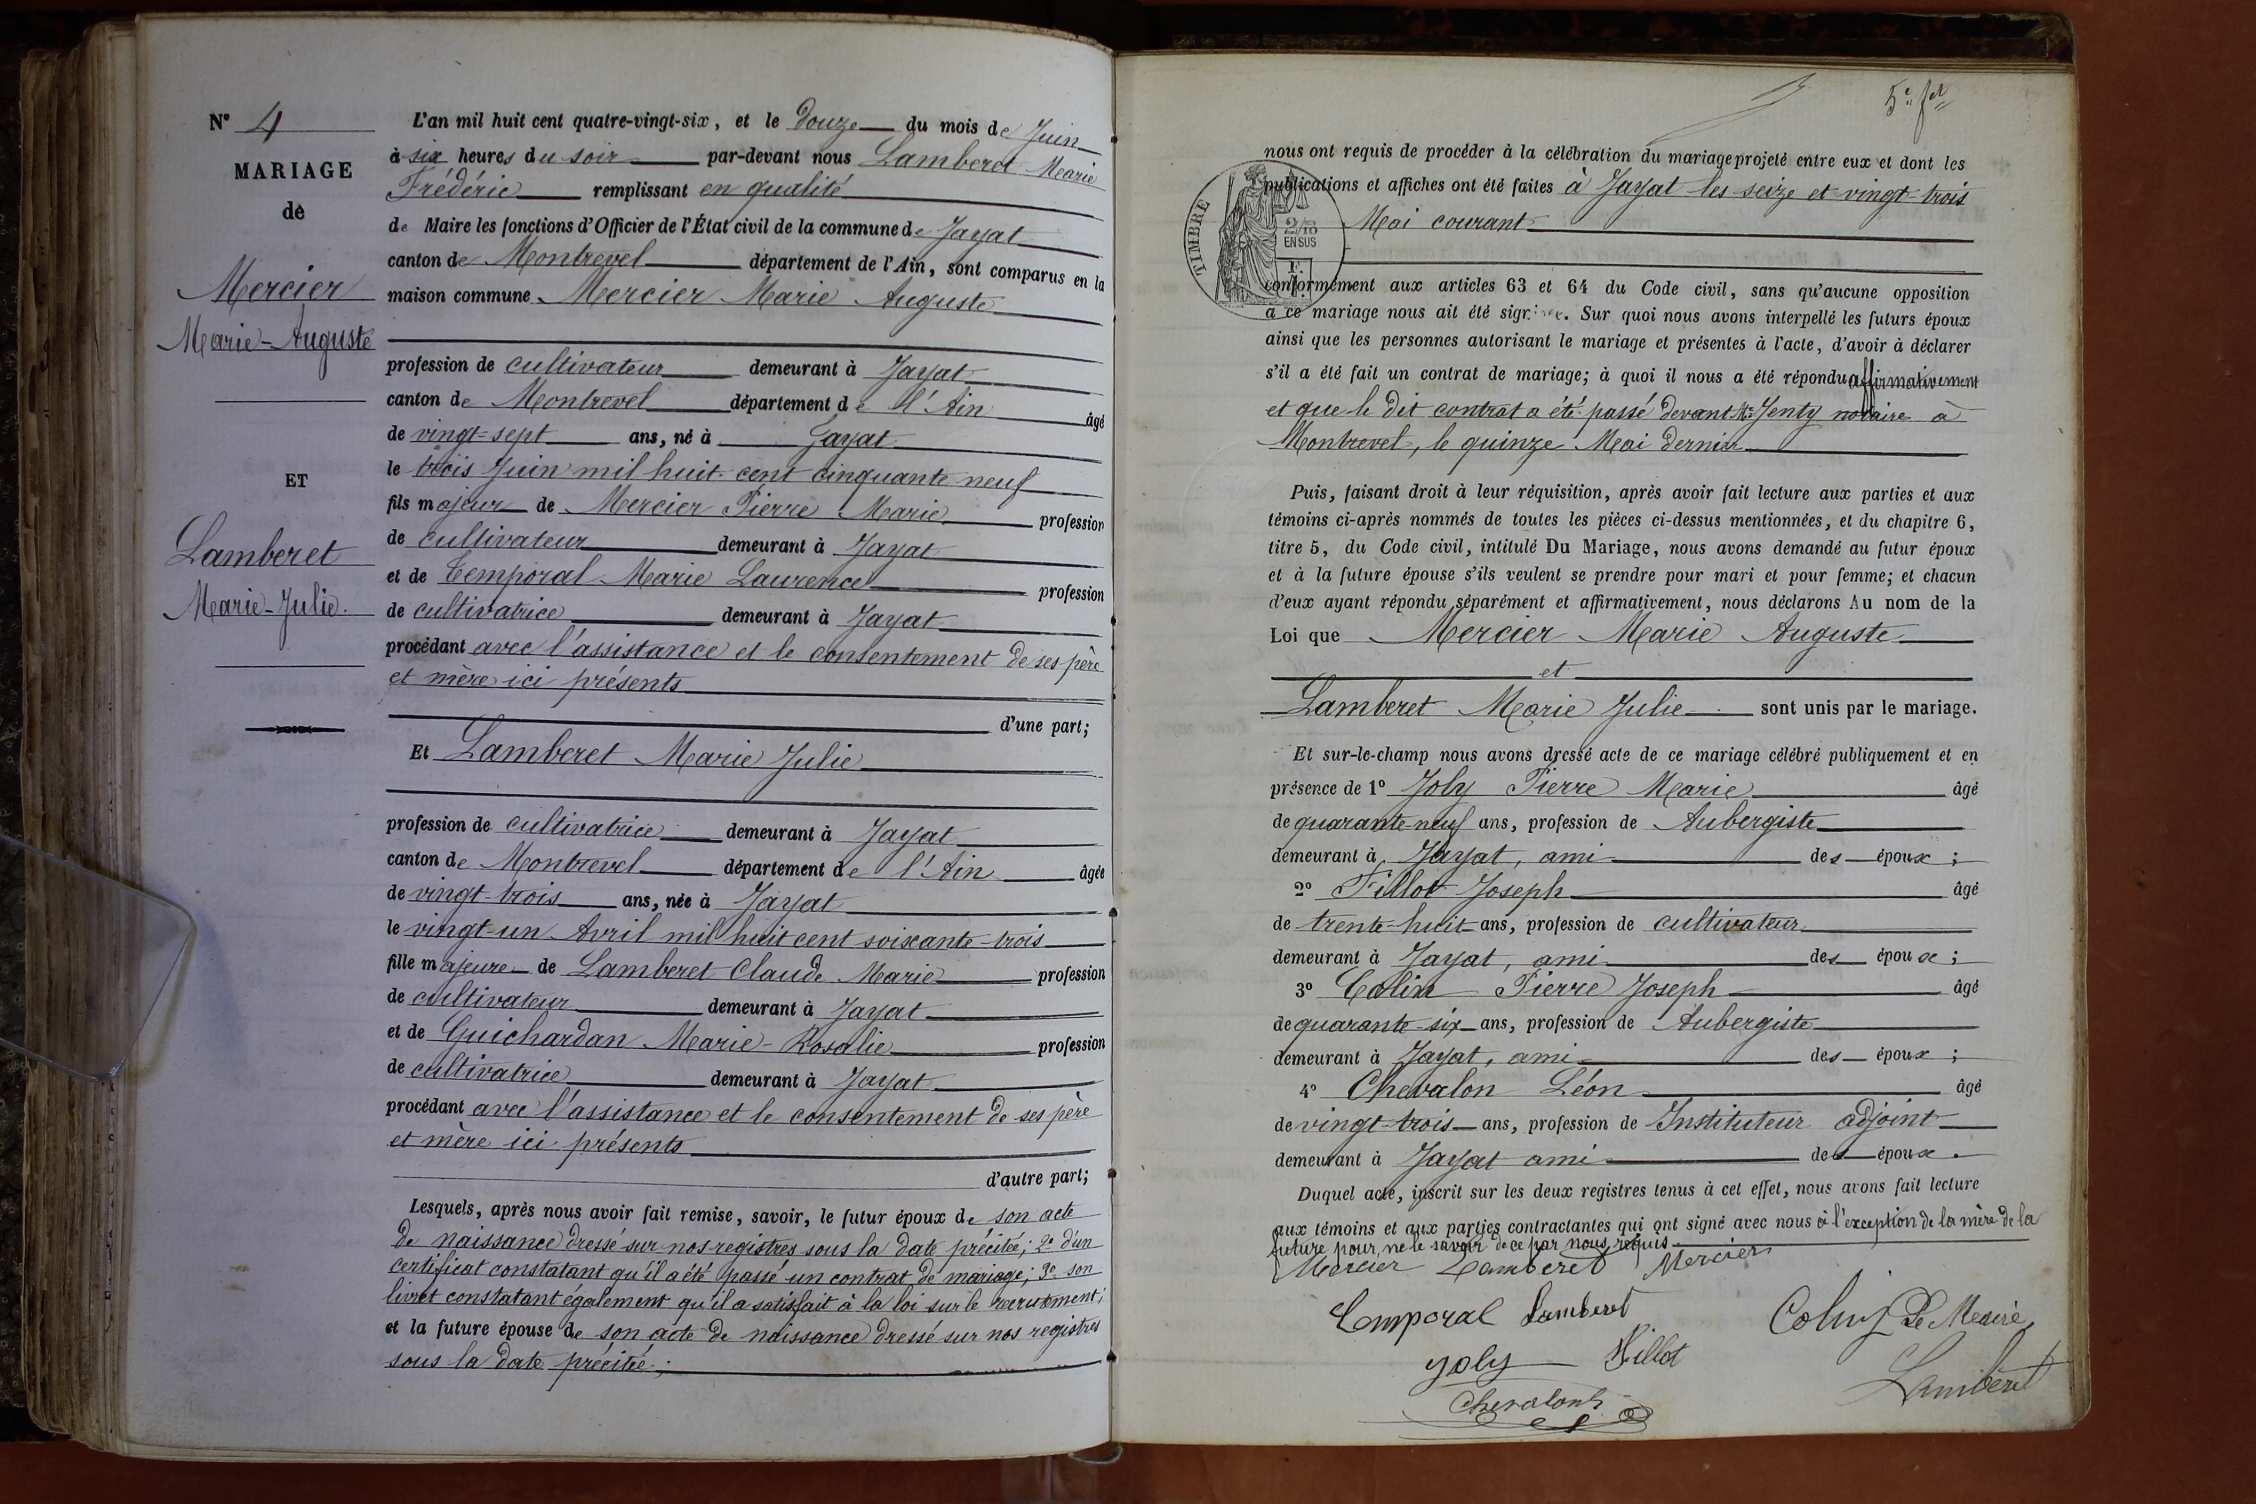 N° 4
MARIAGE
de
Mercier
Marie-Auguste
ET
Lamberet
Marie-Julie.
L'an mil huit cent quatre-vingt-six, et le douze du mois de Juin
à six heures du soir par-devant nous Lamberet Marie
Frédéric remplissant en qualité
de Maire les fonctions d'Officier de l'État civil de la commune de Jayat
canton de Montrevel département de l'Ain, sont comparus en la
maison commune Mercier Marie Auguste
profession de cultivateur demeurant à Jayat
canton de Montrevel département de l'Ain âgé
de vingt-sept ans, né à Jayat
le trois Juin mil huit cent cinquante neuf
fils majeur de Mercier Pierre Marie profession
de cultivateur demeurant à Jayat
et de Temporal Marie Laurence profession
de cultivatrice demeurant à Jayat
procédant avec l'assistance et le consentement de ses père
et mère ici présents
d'une part;
Et Lamberet Marie Julie
profession de cultivatrice demeurant à Jayat
canton de Montrevel département de l'Ain âgée
de vingt-trois ans, née à Jayat
le vingt-un Avril mil huit cent soixante-trois
fille majeure de Lamberet Claude Marie profession
de cultivateur demeurant à Jayat
et de Guichardan Marie-Rosalie profession
de cultivatrice demeurant à Jayat
procédant avec l'assistance et le consentement de ses père
et mère ici présents
d'autre part;
Lesquels, après nous avoir fait remise, savoir, le futur époux de son acte
de naissance dressé sur nos registres sous la date précitée; 2° d'un
certificat constatant qu'il a été passé un contrat de mariage; 3° son
livret constatant également qu'il a satisfait à la loi sur le recrutement;
et la future épouse de son acte de naissance dressé sur nos registres
sous la date précitée;
5e fet
nous ont requis de procéder à la célébration du mariage projeté entre eux et dont les
publications et affiches ont été faites à Jayat les seize et vingt-trois
Mai courant
TIMBRE
2/10
EN SUS
conformément aux articles 63 et 64 du Code civil, sans qu'aucune opposition
à ce mariage nous ait été signifiée. Sur quoi nous avons interpellé les futurs époux
ainsi que les personnes autorisant le mariage et présentes à l'acte, d'avoir à déclarer
s'il a été fait un contrat de mariage; à quoi il nous a été répondu affirmativement
et que le dit contrat a été passé devant Me Jenty notaire à
Montrevel, le quinze Mai dernier
Puis, faisant droit à leur réquisition, après avoir fait lecture aux parties et aux
témoins ci-après nommés de toutes les pièces ci-dessus mentionnées, et du chapitre 6,
titre 5, du Code civil, intitulé Du Mariage, nous avons demandé au futur époux
et à la future épouse s'ils veulent se prendre pour mari et pour femme; et chacun
d'eux ayant répondu séparément et affirmativement, nous déclarons Au nom de la
Loi que Mercier Marie Auguste
et
Lamberet Marie Julie sont unis par le mariage.
Et sur-le-champ nous avons dressé acte de ce mariage célébré publiquement et en
présence de 1° Joly Pierre Marie âgé
de quarante-neuf ans, profession de Aubergiste
demeurant à Jayat, ami des époux;
2° Fillot Joseph âgé
de trente-huit ans, profession de cultivateur
demeurant à Jayat, ami des époux;
3° Colin Pierre Joseph âgé
de quarante-six ans, profession de Aubergiste
demeurant à Jayat, ami des époux;
4° Chevalon Léon âgé
de vingt-trois ans, profession de Instituteur adjoint
demeurant à Jayat ami des époux.
Duquel acte, inscrit sur les deux registres tenus à cet effet, nous avons fait lecture
aux témoins et aux parties contractantes qui ont signé avec nous à l'exception de la mère de la
future pour ne le savoir de ce par nous requis
Mercier Lamberet Mercier
Temporal Lamberet Colin Le Maire,
Joly Fillot Lamberet
Chevalon